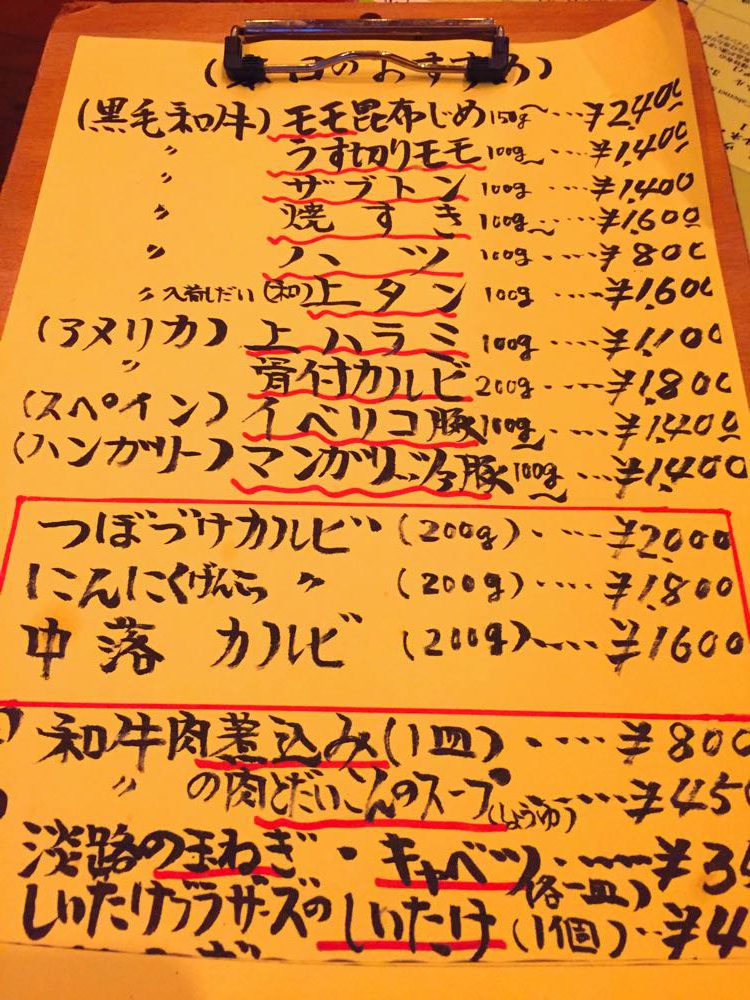 のおすすめ)
(黒毛和牛) モモ昆布じめ 150g~ ‥‥ ¥2,400
〃 うす切りモモ 100g~ ‥‥ ¥1,400
〃 ザブトン 100g ‥‥ ¥1,400
〃 焼すき 100g~ ‥‥ ¥1,600
〃 ハツ 100g ‥‥ ¥800
〃 入荷しだい (和)上タン 100g ‥‥ ¥1,600
(アメリカ) 上ハラミ 100g ‥‥ ¥1,100
〃 骨付カルビ 200g ‥‥ ¥1,800
(スペイン) イベリコ豚 100g~ ‥‥ ¥1,400
(ハンガリー) マンガリッツァ豚 100g~ ‥‥ ¥1,400
つぼづけカルビ (200g) ‥‥ ¥2,000
にんにくげんこつ 〃 (200g) ‥‥ ¥1,800
中落カルビ (200g) ‥‥ ¥1600
和牛肉煮込み (1皿) ‥‥ ¥800
〃 の肉とだいこんのスープ (しょうゆ) ‥‥ ¥45
淡路の玉ねぎ・キャベツ (各一皿) ‥‥ ¥3
しいたけブラザーズのしいたけ (1個) ‥ ¥4